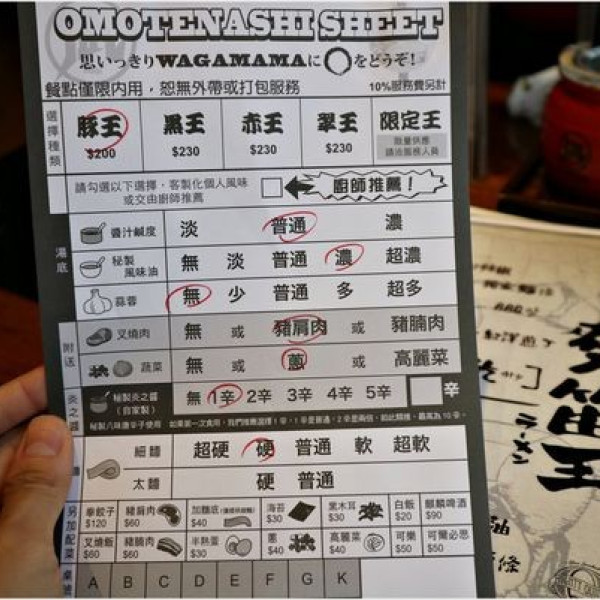 OMOTENASHI SHEET
思いっきりWAGAMAMAに◯をどうぞ!
餐點僅限內用，恕無外帶或打包服務 10%服務費另計
選擇種類 豚王 黑王 赤王 翠王 限定王
$200 $230 $230 $230 限量供應 請洽服務人員
請勾選以下選擇，客製化個人風味 或交由廚師推薦 廚師推薦!
湯底
醬汁鹹度 淡 普通 濃
秘製風味油 無 淡 普通 濃 超濃
蒜蓉 無 少 普通 多 超多
附送
叉燒肉 無 或 豬肩肉 或 豬腩肉
蔬菜 無 或 蔥 或 高麗菜
炎之醬 秘製炎之醬(自家製) 無 1辛 2辛 3辛 4辛 5辛 辛
細麵 超硬 硬 普通 軟 超軟
太麵 硬 普通
另加配菜
拳餃子 $120 豬肩肉 $60 加麵底 $40 海苔 $30 黑木耳 $30 白飯 $20 麒麟啤酒 $90
叉燒飯 $60 豬腩肉 $60 半熟蛋 $30 蔥 $40 高麗菜 $40 可樂 $50 可爾必思 $50
A B C D E F G K
ラーメン